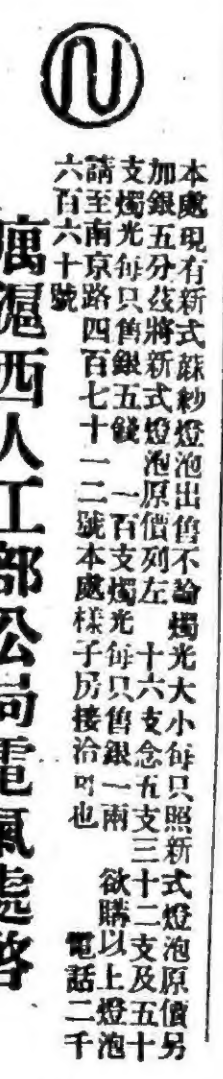 本處現有新式蔴紗燈泡出售不論燭光大小每只照新式燈泡原價另
加銀五分茲將新式燈泡原價列左 十六支念五支三十二支及五十
支燭光每只售銀五錢 一百支燭光每只售銀一兩 欲購以上燈泡
請至南京路四百七十一二號本處樣子房接洽可也 電話二千
六百六十號
寓滬西人工部公局電氣處啓